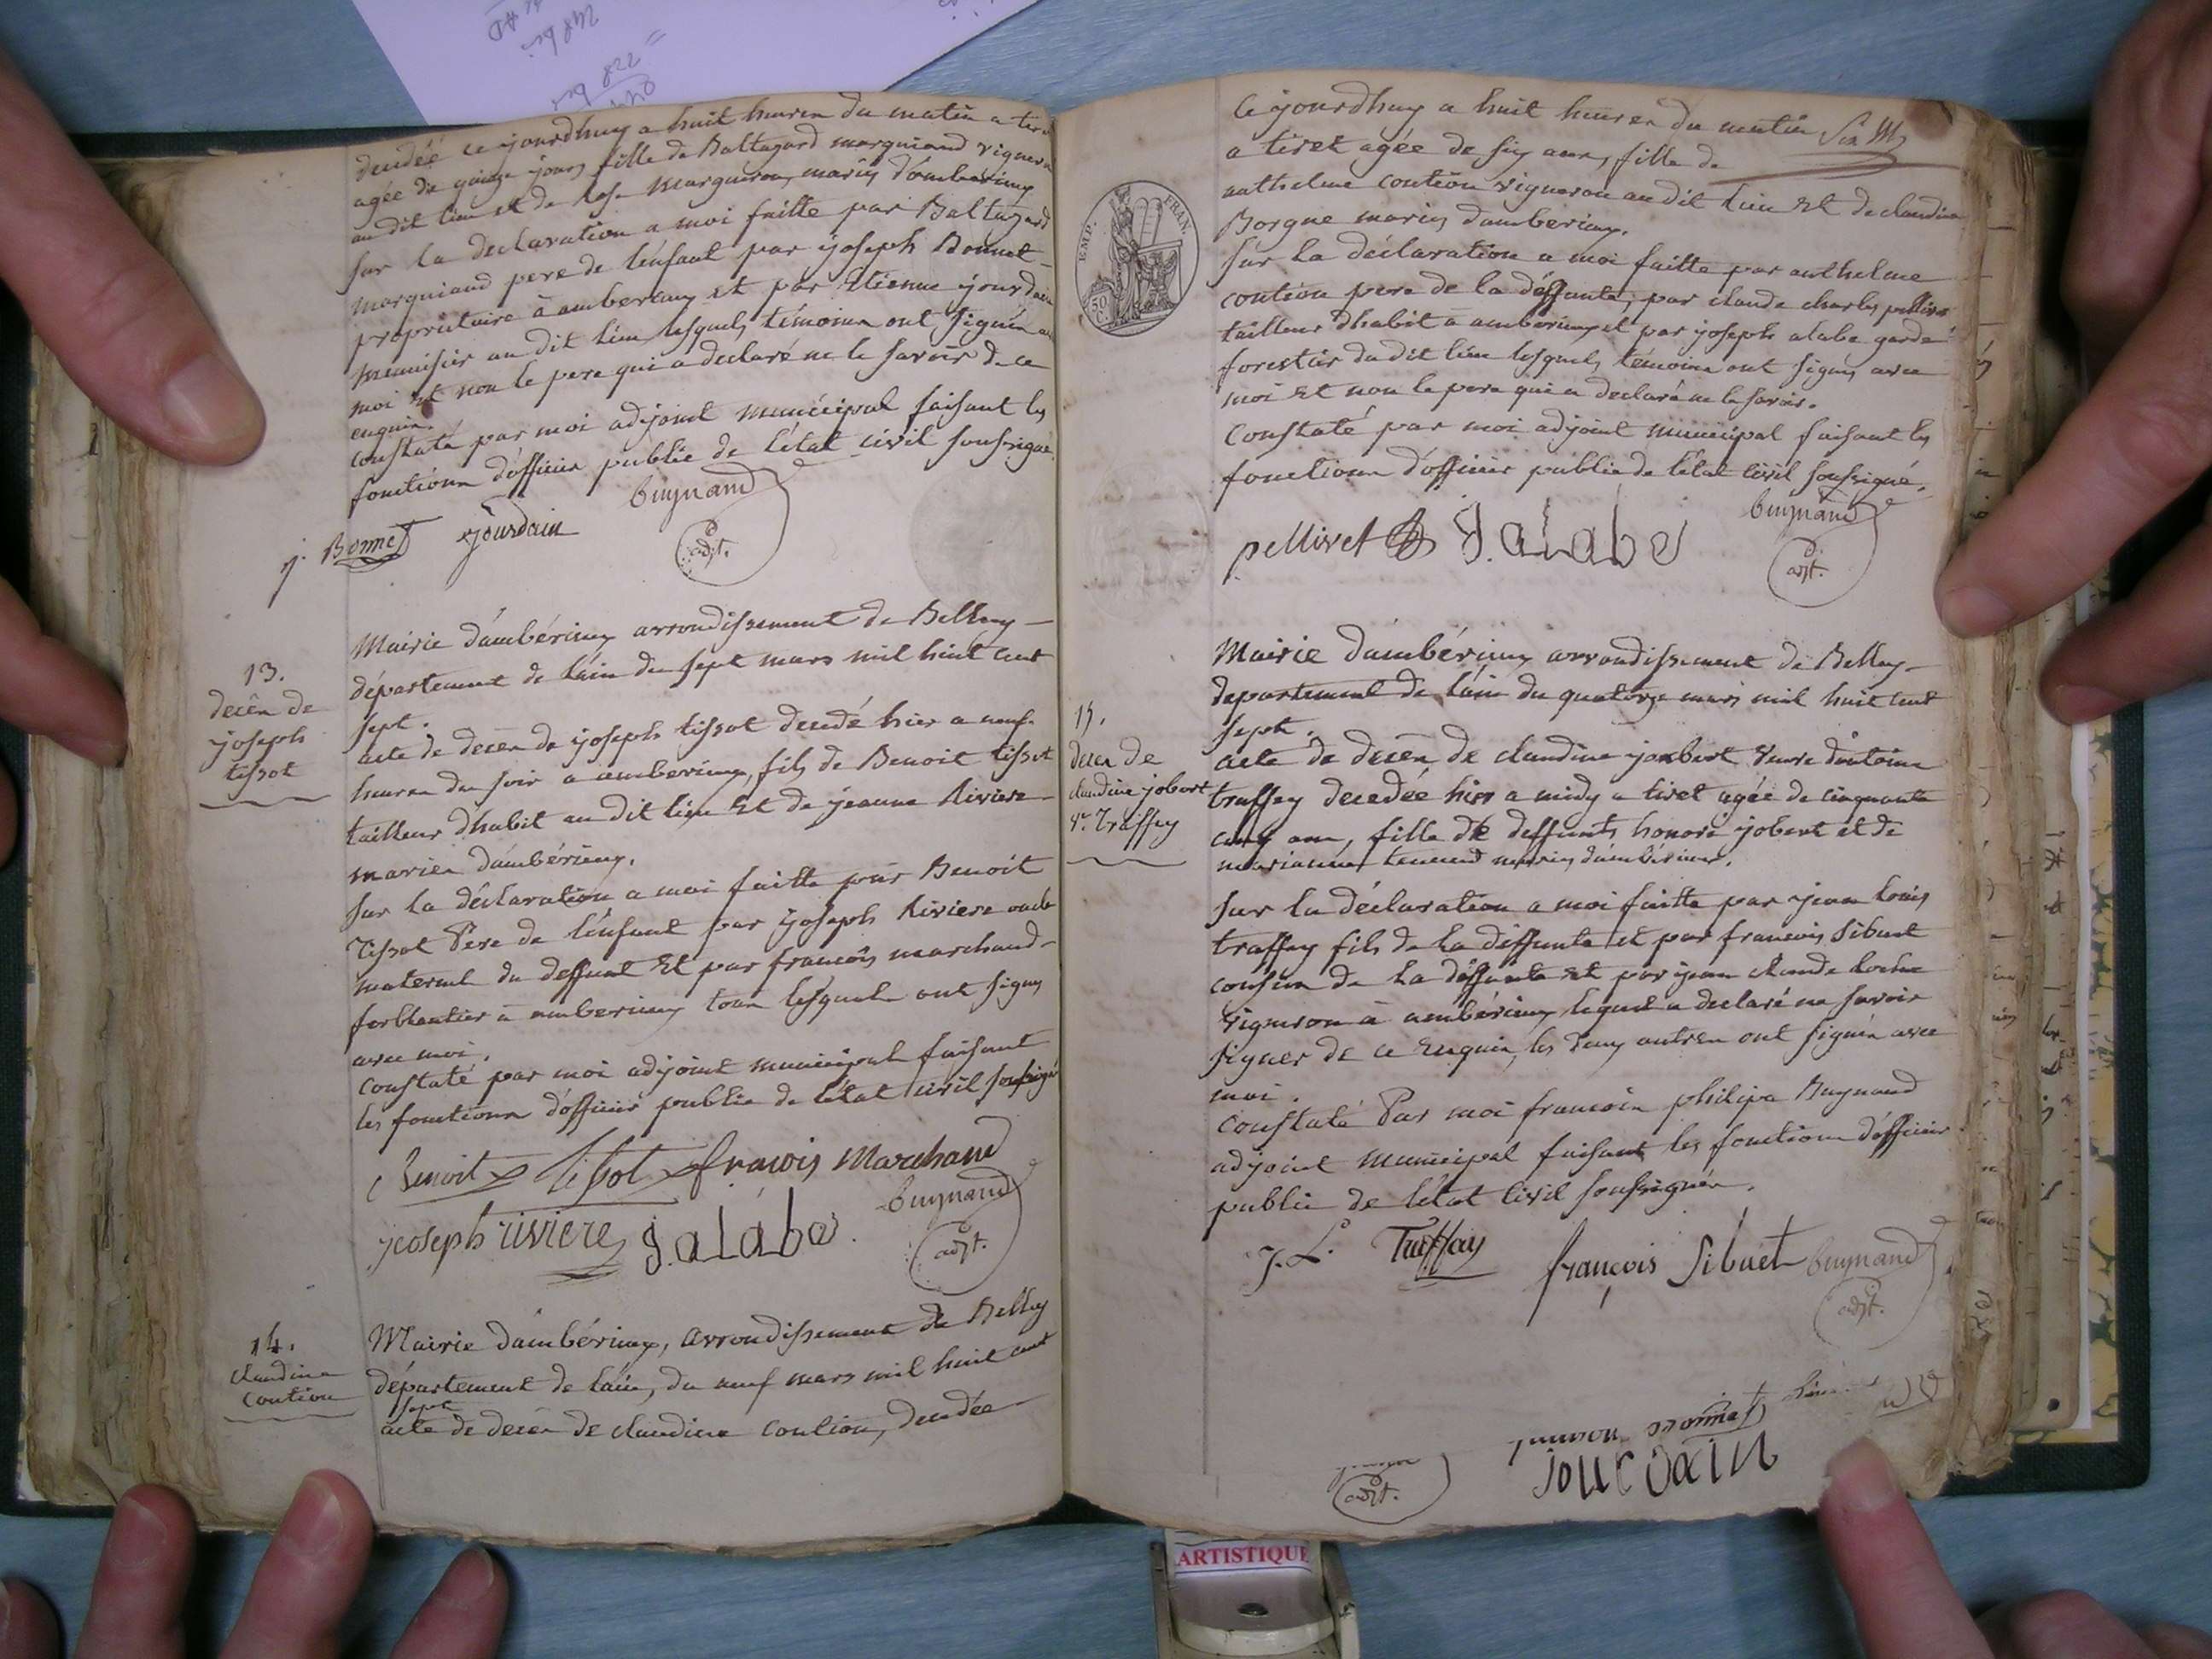 decedéé ce ijourdhuy a huit heures du matin a tiret
agée de quinze jours fille de Baltazard marguiand vigneron
au dit lieu et de Rose margueron, mariés d'amberieux
sur la declaration a moi faitte par Baltazard
marguiand pere de l'enfant par ijoseph Bonnet
propriétaire à amberieux et par Etienne ijourdain
menuisier au dit lieu, lesquels témoins ont signés avec
moi et non le pere qui a declaré ne le savoir de ce
enquis.
constaté par moi adjoint municipal faisant les
fonctions d'officier public de l'état civil soussigné.
j. Bonnet Jourdain buynand
adjt.
13.
decès de
ijoseph
tissot
Mairie d'ambérieux arrondissement de Belley
département de l'ain du sept mars mil huit cent
sept.
acte de decès de ijoseph tissot decedé hier a neuf
heures du soir a amberieux, fils de Benoit tissot
tailleur d'habit au dit lieu Et de jeanne Riviere
mariés d'ambérieux.
sur la déclaration a moi faitte par Benoit
Tissot Pere de l'enfant par ijoseph Riviere oncle
maternel du deffunt Et par francois marchand
ferblantier a amberieux tous lesquels ont signés
avec moi.
constaté par moi adjoint municipal faisant
les fonctions d'officier public de l'état civil soussigné
Benoit tissot francois Marchand
joseph riviere J. alabe. buynand
adjt.
14.
claudine
contion
Mairie d'ambérieux, arrondissement de Belley
département de l'ain, du neuf mars mil huit cent
sept
acte de decès de claudine contion, decedée
ce ijourdhuy a huit heures du matin
a tiret agée de six ans, fille de
anthelme contion vigneron au dit lieu Et de claudine
Borgne mariés d'amberieux.
sur la déclaration a moi faitte par anthelme
contion pere de la deffunte, par claude charles pellivet
tailleur d'habit a amberieux et par ijoseph alabe garde
forestier du dit lieu lesquels témoins ont signés avec
moi Et non le pere qui a declaré ne le savoir.
constaté par moi adjoint municipal faisant les
fonctions d'officier public de l'état civil soussigné.
EMP. FRAN.
50 C.
pellivet J. alabe buynand
adjt.
15.
deces de
claudine jobert
Ve. Truffey
Mairie d'ambérieux arrondissement de Belley
departement de l'ain du quatorze mars mil huit cent
sept.
acte de decès de claudine joubert veuve d'antoine
truffey decedée hier a midy a tiret agée de cinquante
cinq ans, fille de deffunts honoré jobert et de
marianne tenand mariés d'ambérieux.
sur la déclaration a moi faitte par jean louis
truffey fils de la deffunte et par francois Sibuet
cousin de la deffunte et par ijean claude Roche
vigneron à ambérieux lequel a declaré ne savoir
signer de ce Enquis, les deux autres ont signés avec
moi.
constaté Par moi francois philipe Buynand
adjoint municipal faisant les fonctions d'officier
public de l'état civil soussigné.
J. L. Truffay françois Sibuet buynand
adjt.
adjt.
Jourdain
ARTISTIQUE